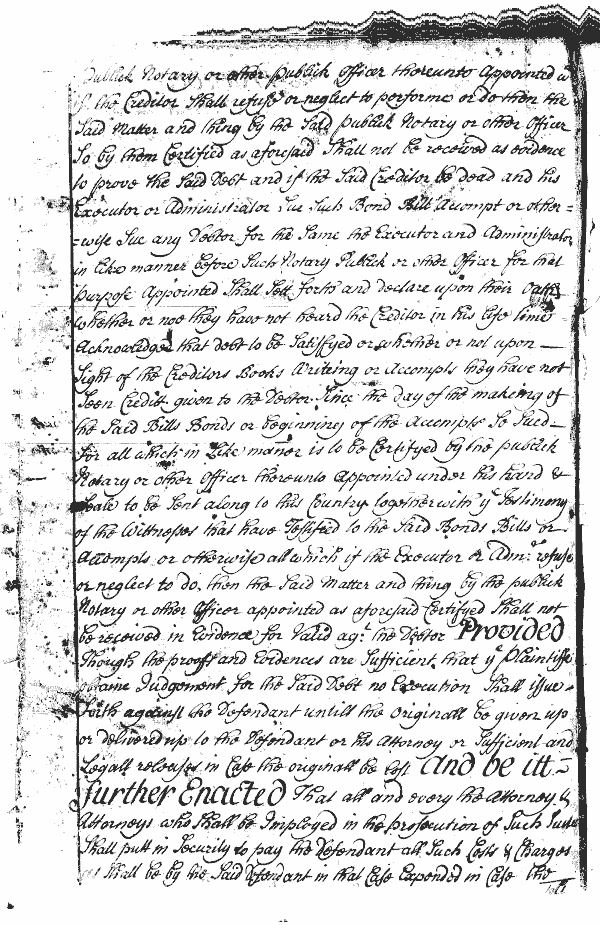 Publick Notary or other publick Officer thereunto Appointed
if the Creditor Shall refuse or neglect to performe or do then the
Said Matter and thing by the Said publick Notary or other Officer
So by them Certified as aforesaid Shall not be received as evidence
to prove the Said Debt and if the Said Creditor be dead and his
Executor or Administrator Sue Such Bond Bill Accompt or other=
=wise Sue any Debtor for the Same the Executor and Administrator
in like manner before Such Notary Publick or other Officer for that
purpose Appointed Shall Sett forth and declare upon their Oaths
whether or noe they have not heard the Creditor in his life time
Acknowledge that debt to be Satisfyed or whether or not upon —
Sight of the Creditors Books Writeing or Accompts they have not
Seen Credit given to the Debtor Since the day of the makeing of
the Said Bills Bonds or beginning of the Accompts So Sued —
for all which in Like manner is to be Certifyed by the publick
Notary or other Officer thereunto Appointed under his hand &
Seale to be Sent along to this Country together with yᵉ Testimony
of the Wittnesses that have Testified to the Said Bonds Bills or
Accompts or otherwise all which if the Executor or Admʳ. refuse
or neglect to do, then the Said Matter and thing by the publick
Notary or other Officer appointed as aforesaid Certifyed Shall not
be received in Evidence for Valid agᵗ. the Debtor Provided
Though the proofs and Evidences are Sufficient that yᵉ Plaintiffe
obtaine Judgement for the Said Debt no Execution Shall issue
forth against the Defendant untill the Originall be given up
or delivered up to the Defendant or his Attorney or Sufficient and
Legall releases in Case the originall be lost And be itt =
further Enacted That all and every the Attorney &
Attorneys who Shall be Imployed in the prosecution of Such Suite
Shall putt in Security to pay the Defendant all Such Costs & Charges
as Shall be by the Said Defendant in that Case Expended in Case the